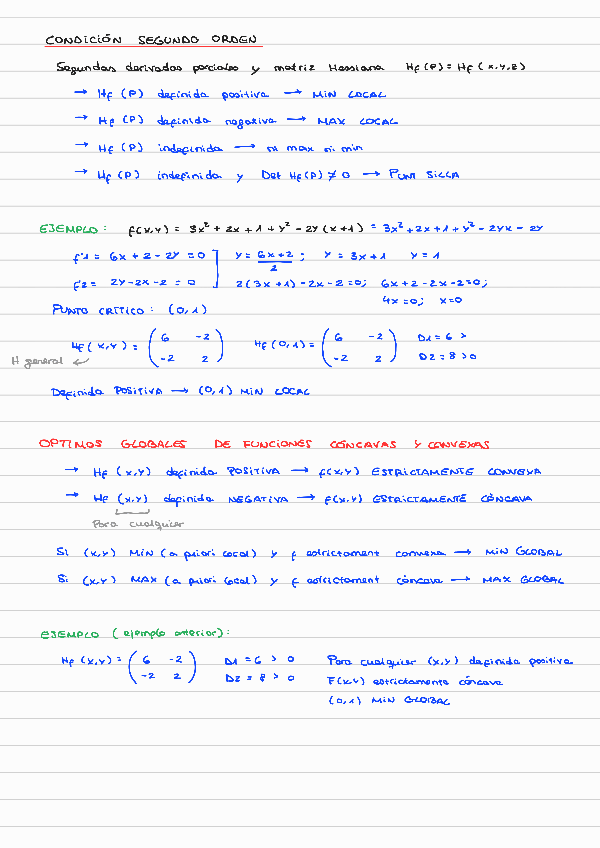 CONDICIÓN SEGUNDO ORDEN
Segundas derivadas parciales y matriz Hessiana Hf (P) = Hf (x,y,z)
→ Hf (P) definida positiva → MIN LOCAL
→ Hf (P) definida negativa → MAX LOCAL
→ Hf (P) indefinida → ni max ni min
→ Hf (P) indefinida y Det Hf(P) ≠ 0 → PUNT SILLA
EJEMPLO: f(x,y) = 3x² + 2x + 1 + y² - 2y (x+1) = 3x² + 2x + 1 + y² - 2yx - 2y
f'1 = 6x + 2 - 2y = 0 ] y = (6x+2)/2 ; y = 3x+1 y = 1
f'2 = 2y - 2x - 2 = 0 ] 2(3x+1) - 2x - 2 = 0; 6x + 2 - 2x - 2 = 0;
4x = 0; x = 0
PUNTO CRÍTICO: (0,1)
Hf (x,y) = ( 6 -2 Hf (0,1) = ( 6 -2 D1 = 6 >
-2 2 ) -2 2 ) D2 = 8 > 0
H general ↙
Definida POSITIVA → (0,1) MIN LOCAL
OPTIMOS GLOBALES DE FUNCIONES CÓNCAVAS Y CONVEXAS
→ Hf (x,y) definida POSITIVA → f(x,y) ESTRICTAMENTE CONVEXA
→ Hf (x,y) definida NEGATIVA → f(x,y) ESTRICTAMENTE CÓNCAVA
Para cualquier
Si (x,y) MIN (a priori local) y f estrictament convexa → MIN GLOBAL
Si (x,y) MAX (a priori local) y f estrictament cóncava → MAX GLOBAL
EJEMPLO (ejemplo anterior):
Hf (x,y) = ( 6 -2 D1 = 6 > 0 Para cualquier (x,y) definida positiva
-2 2 ) D2 = 8 > 0 F(x,y) estrictamente cóncava
(0,1) MIN GLOBAL